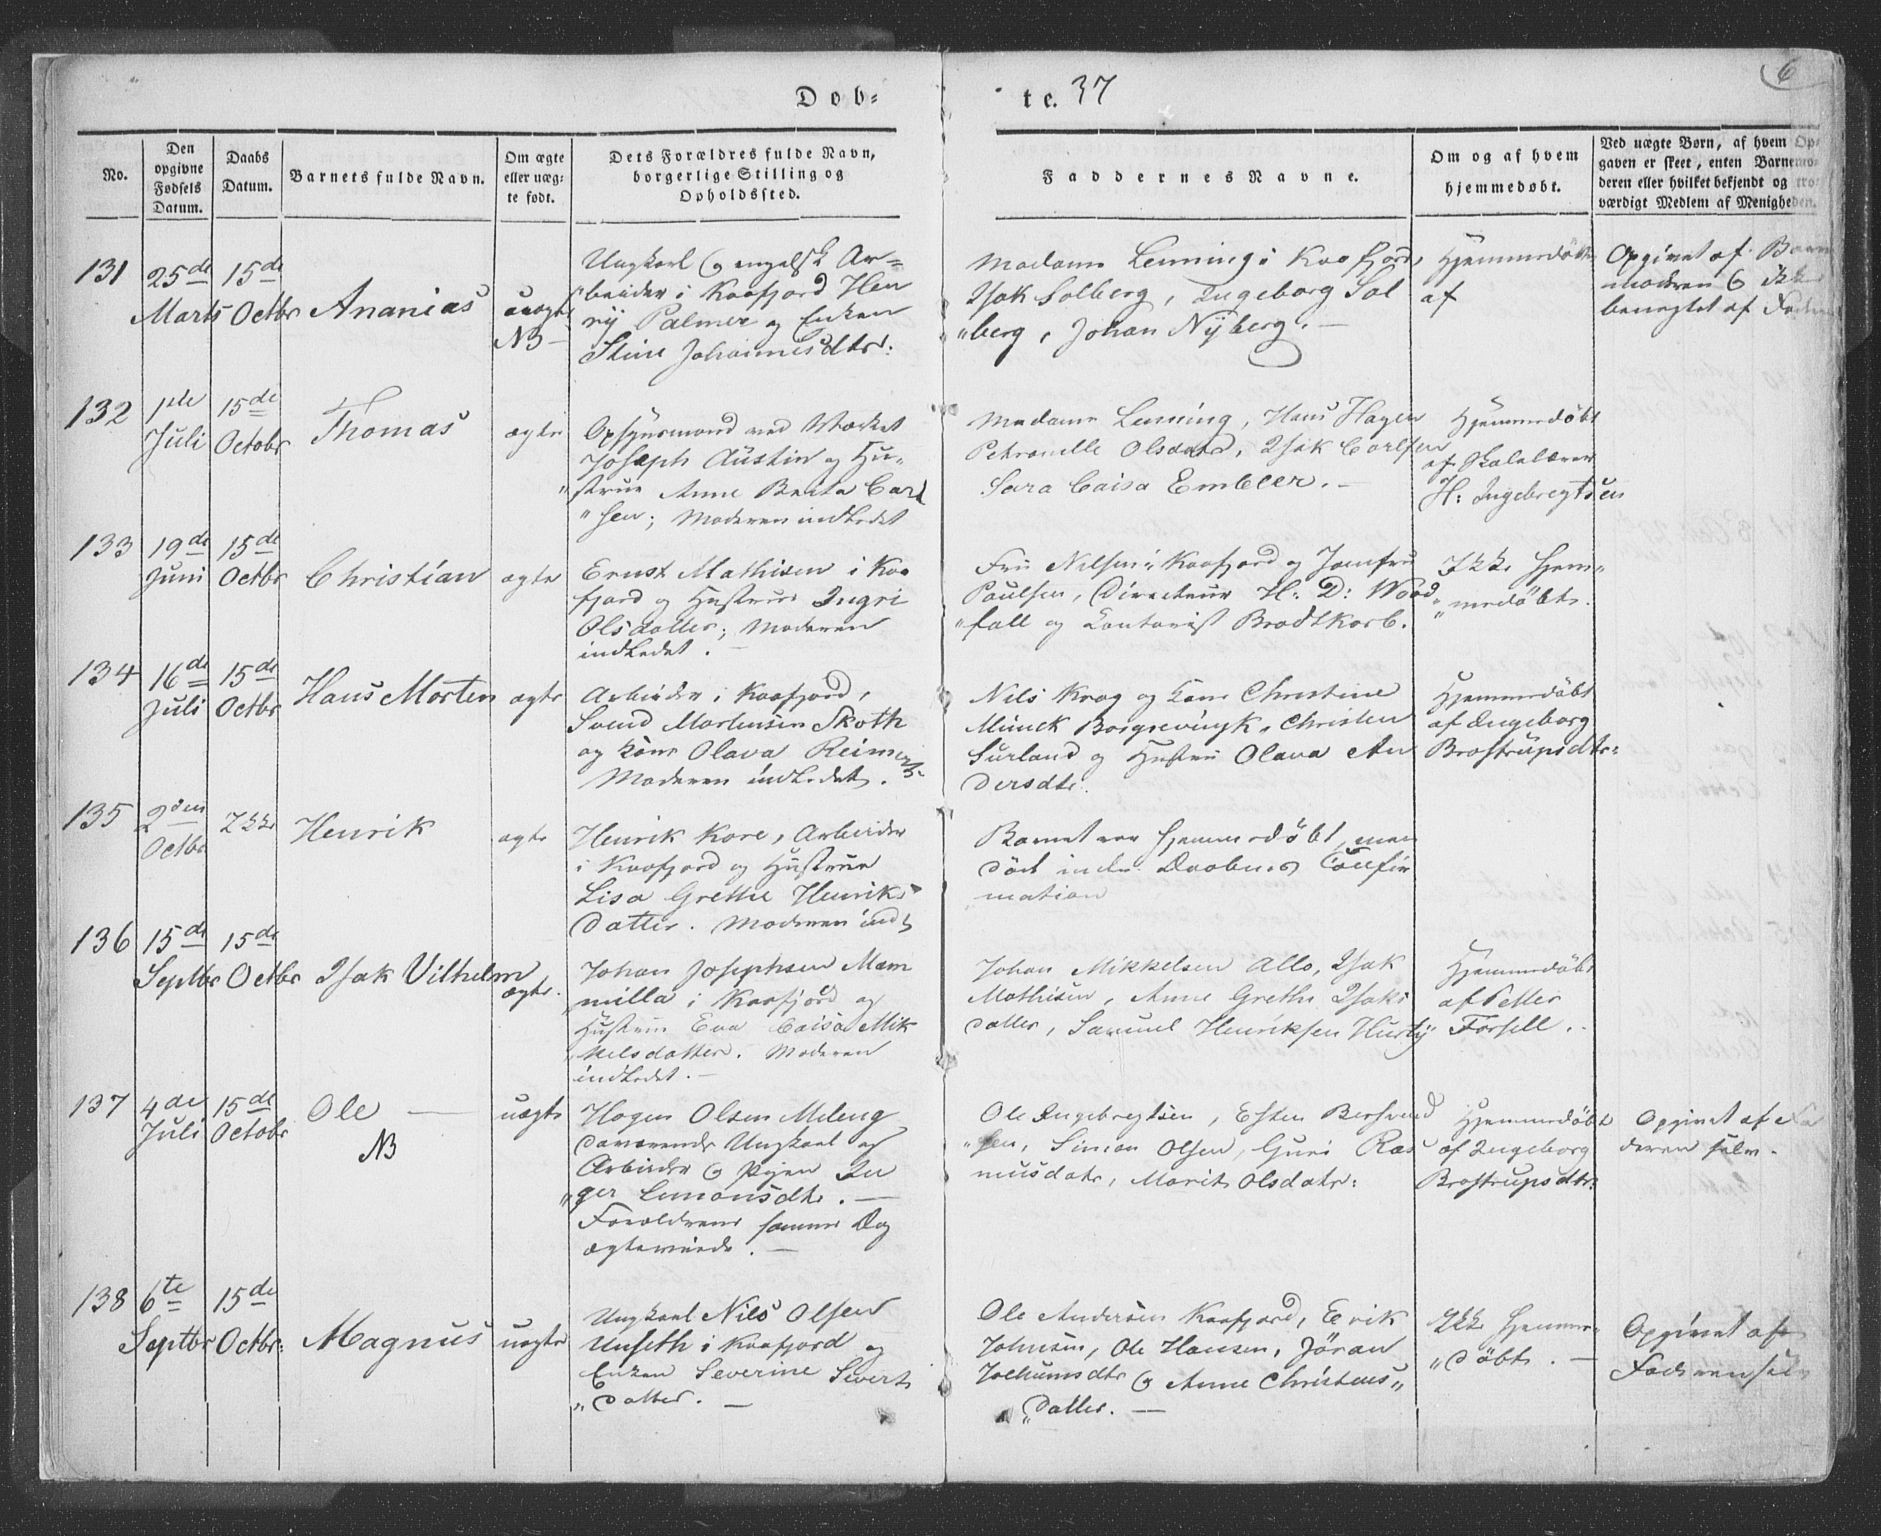 Døb-
te. 37
6
No.
Den opgivne Fødsels Datum.
Daabs Datum.
Barnets fulde Navn.
Om ægte eller uæg-te født.
Dets Forældres fulde Navn, borgerlige Stilling og Opholdssted.
Faddernes Navne.
Om og af hvem hjemmedøbt.
Ved uægte Børn, af hvem Op-gaven er skeet, enten Barnemo-deren eller hvilket bekjendt og tro-værdigt Medlem af Menigheden.
131
25de
Marts
15de
Octbr
Ananias
uægte
NB
Ungkarl og engelsk Ar-
beider i Kaafjord Hen
ry Palmer og Enken
Stine Johannesdtr:
Madame Lenning i Kaafjord,
Isak Solberg, Ingeborg Sol
"berg, Johan Nyberg. —
Hjemmedøbt
af
Opgivet af Barne
moderen & ikke
benegtet af Fader
132
1ste
Juli
15de
Octobr
Thomas
ægte
Opsynsmand ved Værket
Joseph Austin og Hu-
"strue Anne Breta Carl
"sen; Moderen indledet
Madame Lenning, Hans Hagen
Petronelle Olsdatr, Isak Carlsen
Sara Caisa Embeer. —
Hjemmedøbt
af Skolelærer
H: Ingebregtsen
133
19de
Juni
15de
Octbr
Christian
ægte
Ernst Mathisen i Kaa
fjord og Hustrue Ingri
Olsdatter; Moderen
indledet. —
Fru Nilsen i Kaafjord og Jomfru
Paulsen, Directeur H: D: Wood
"fall og Contorist Brodtkorb.
Ikke Hjem-
"medøbt.
134
16de
Juli
15de
Octbr
Hans Morten
ægte
Arbeider i Kaafjord,
Svend Mortensen Skoth
og Kone Olava Reimers
Moderen indledet.
Nils Krog og Kone Christine
Munck Borgrevingk, Christen
Surland og Hustru Olava An
dersdtr
Hjemmedøbt
af Ingeborg
Brostrupsdtr:
135
2den
Octbr
Ikke
Henrik
ægte
Henrik Kore, Arbeider
i Kaafjord og Hustrue
Lisa Grethe Henriks
datter. Moderen indl
Barnet var hjemmedøbt, men
død inden Daabens Confir
mation
136
15de
Septbr
15de
Octbr
Isak Vilhelm
ægte.
Johan Josephsen Mam
milla i Kaafjord og
Hustrue Eva Caisa Mik
"kelsdatter. Moderen
indledet. —
Johan Mikkelsen Allo, Isak
Mathisen, Anne Grethe Isaks
datter, Samuel Henriksen Hurty
Hjemmedøbt
af Petter
Forsell.
137
4de
Juli
15de
Octobr
Ole —
NB
uægte
Hagen Olsen Meleng
daværende Ungkarl og
Arbeider & Pigen In
"ger Simonsdtr. —
Forældrene samme Dag
ægteviede. —
Ole Ingebregtsen, Esten Bersvend
"sen, Simon Olsen, Guri Ras
musdatr, Marit Olsdatr:
Hjemmedøbt
af Ingeborg
Brostrupsdtr:
Opgivet af Fa
deren selv.
138
6te
Septbr
15de
Octbr:
Magnus
uægte
Ungkarl Nils Olsen
Unseth i Kaafjord og
Enken Severine Siverts
"datter. —
Ole Andersen Kaafjord, Erik
Johnsen, Ole Hansen, Jøran
Jochumsdtr & Anne Christens"
"datter. —
Ikke hjemme-
"døbt. —
Opgivet af
Faderen selv